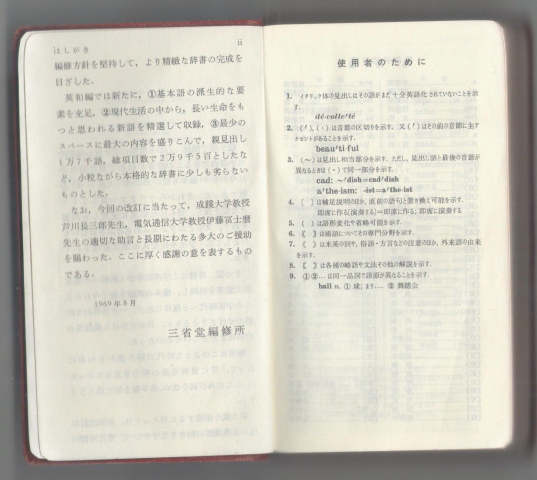 はしがき
ii
編修方針を堅持して，より精緻な辞書の完成を
目ざした．
英和編では新たに，①基本語の派生的な要
素を充足，②現代生活の中から，長い生命をも
つと思われる新語を精選して収録，③最少の
スペースに最大の内容を盛りこんで，親見出し
1万7千語，総項目数で2万9千5百としたな
ど，小粒ながら本格的な辞書に少しも劣らない
ものとした．
なお，今回の改訂に当たって，成蹊大学教授
芦川長三郎先生，電気通信大学教授伊藤冨士麿
先生の適切な助言と長期にわたる多大のご援助
を賜わった．ここに厚く感謝の意を表するもの
である．
1969年8月
三省堂編修所
使用者のために
1. イタリック体の見出しはその語がまだ十分英語化されていないことを示
す．
dé·colle·té
2. (′), (·) は音節の区切りを示す．又 (′) はその前の音節に主ア
クセントがあることを示す．
beau′ti·ful
3. (～) は見出し相当部分を示す．ただし，見出し語と最後の音節が
異なるときは (-) で同一部分を示す．
cad: ～′dish=cad′dish
a′the·ism: -ist=a′the·ist
4. [ ] は補足説明のほか，直前の語句と置き換え可能を示す．
即席に作る[演奏する]=即席に作る; 即席に演奏する
5. ( ) は語形変化や省略可能を示す．
6. 〘 〙 は術語についてその専門分野を示す．
7. 〔 〕 は米英の別や，俗語・方言などの注意のほか，外来語の由来
を示す．
8. 〖 〗 は各種の略語や文法その他の解説を示す．
9. ①②… は同一品詞で語原が異なることを示す．
ball n. ① 球; まり.… ② 舞踏会